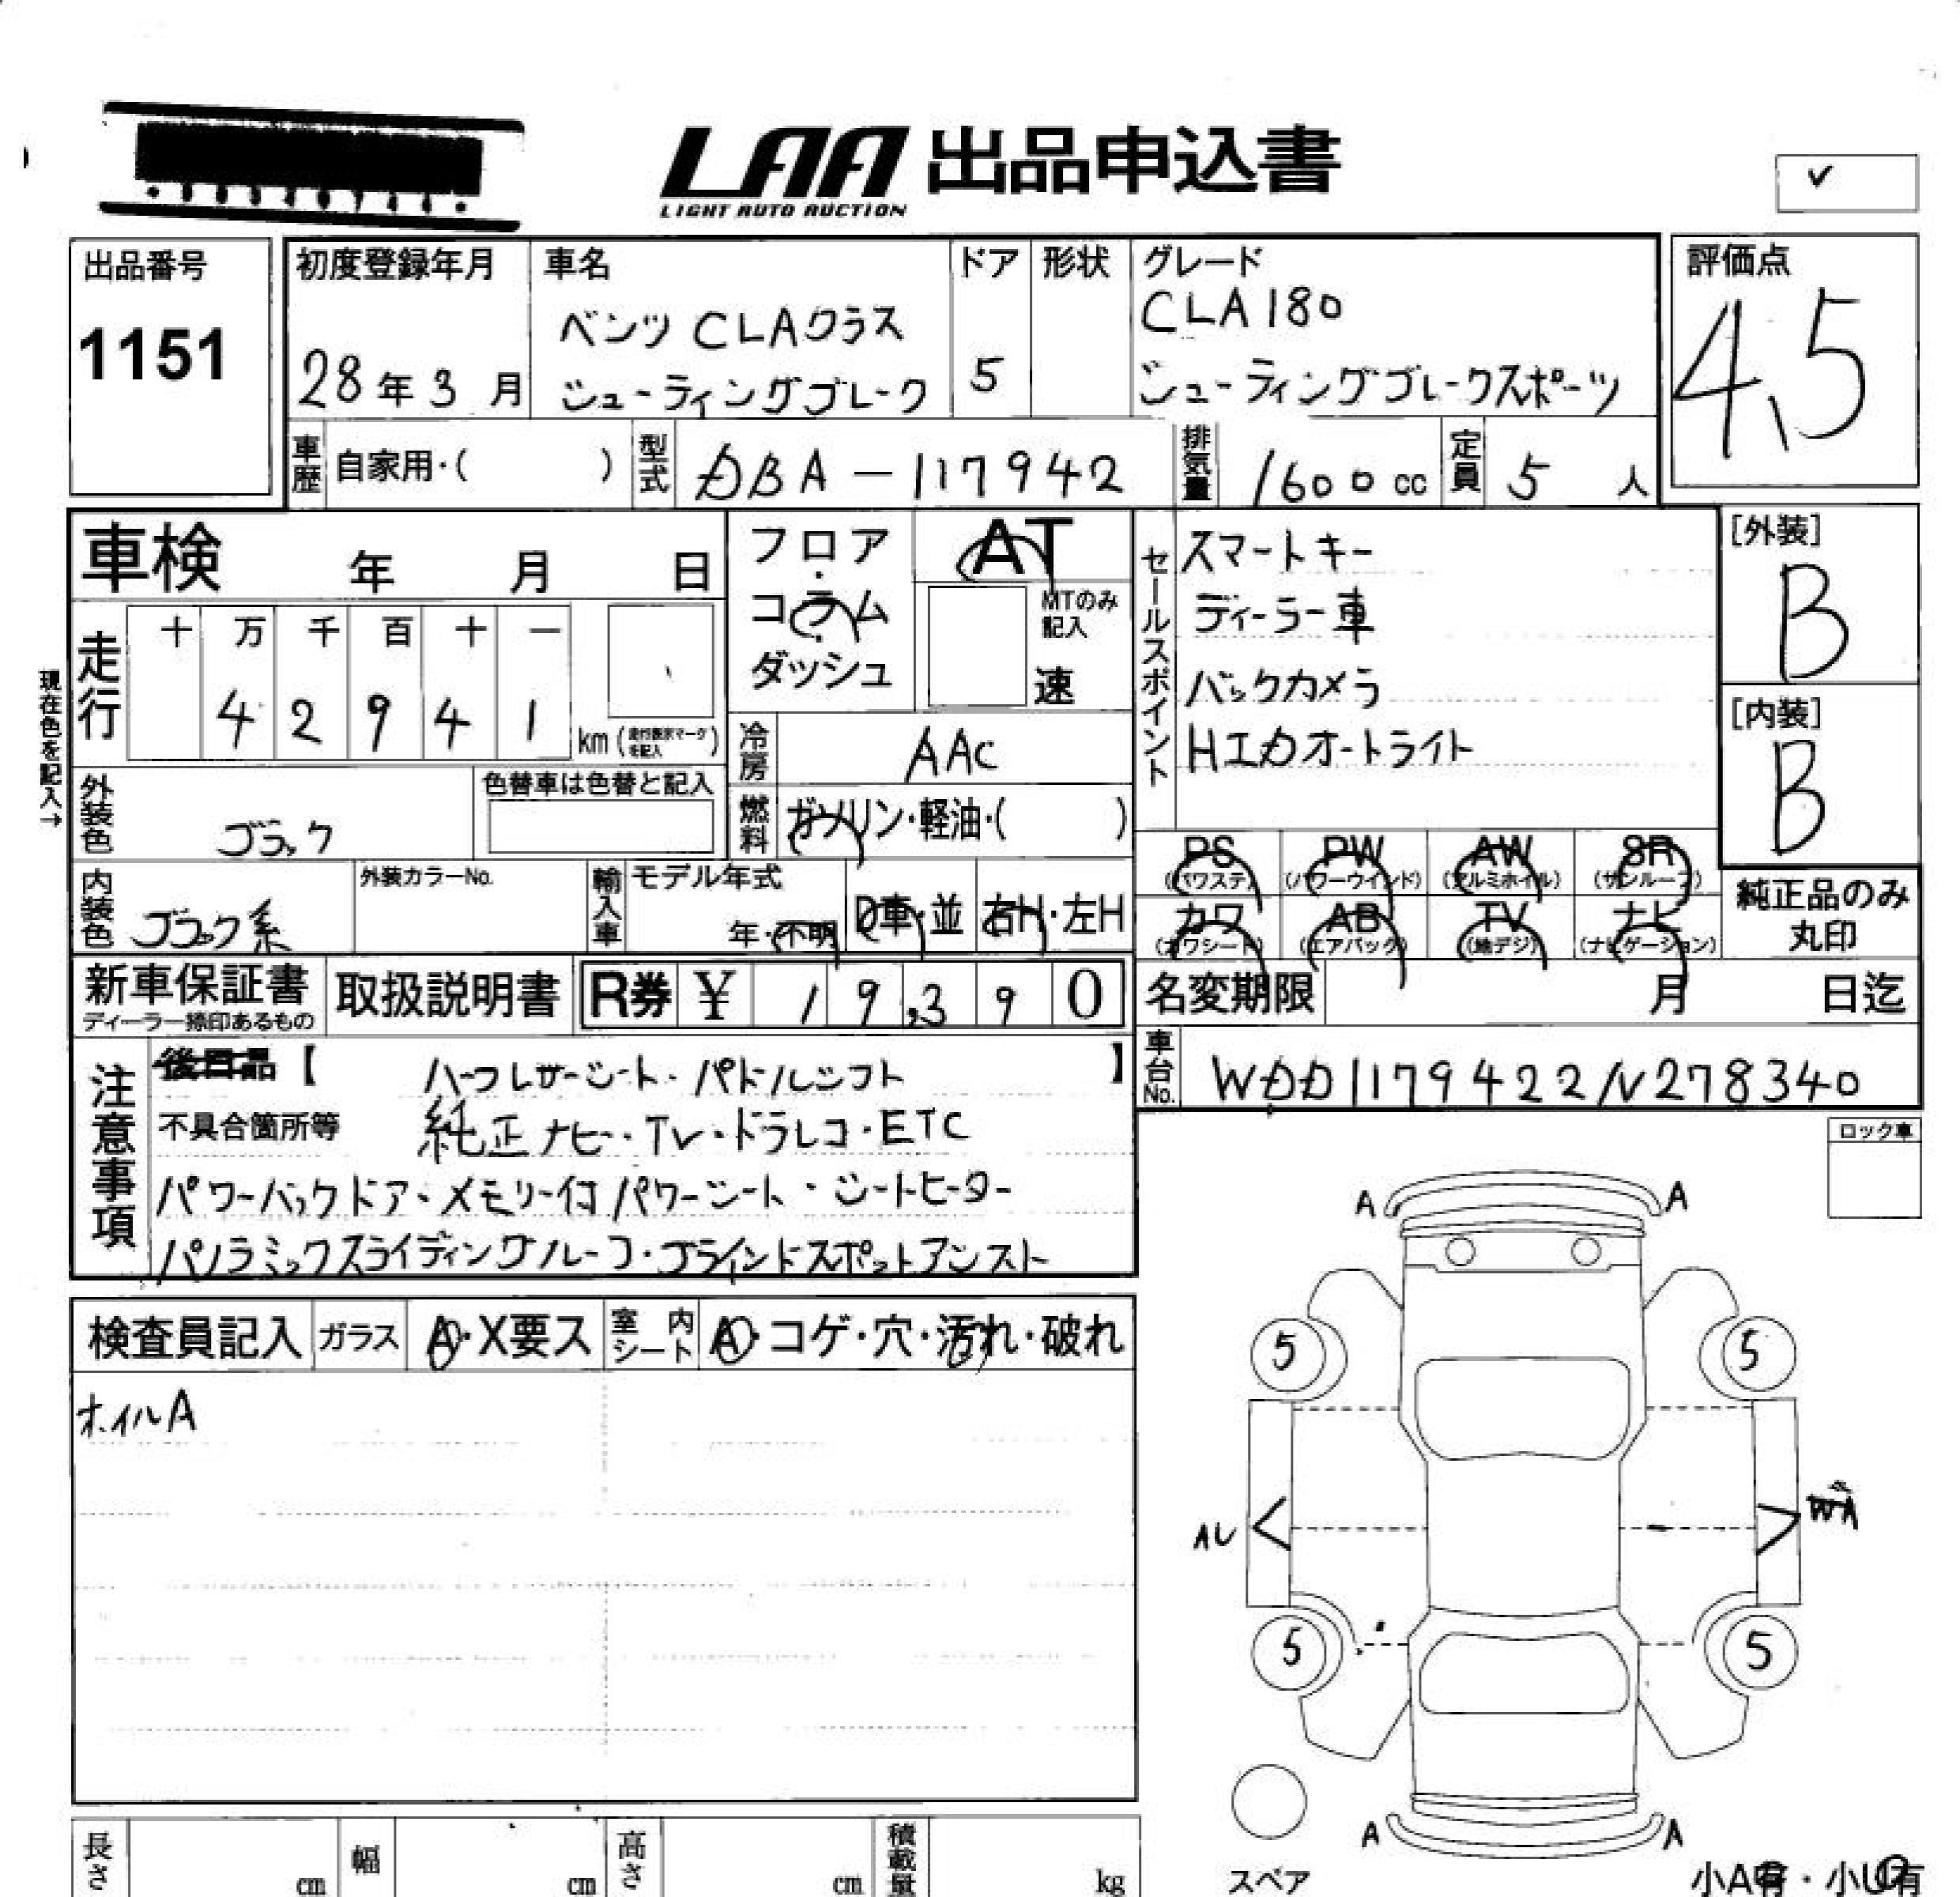 LAA 出品申込書
LIGHT AUTO AUCTION
出品番号
1151
初度登録年月
28年3月
車名
ベンツ CLAクラス
シューティングブレーク
ドア
5
形状
グレード
CLA180
シューティングブレークスポーツ
評価点
4.5
車歴 自家用・( )
型式 DBA-117942
排気量 1600cc
定員 5人
車検 年 月 日
フロア・コラム・ダッシュ
AT
MTのみ記入
速
セールスポイント
スマートキー
ディーラー車
バックカメラ
HIDオートライト
[外装]
B
[内装]
B
現在色を記入→
走行
十 万 千 百 十 一
4 2 9 4 1 km
冷房 AAC
燃料 ガソリン・軽油・( )
外装色 ブラック
色替車は色替と記入
内装色 ブラック系
外装カラーNo.
輸入車
モデル年式
年・不明
D車・並
右H・左H
PS (パワステ)
PW (パワーウインド)
AW (アルミホイル)
SR (サンルーフ)
カワ (カワシート)
AB (エアバック)
TV (地デジ)
ナビ (ナビゲーション)
純正品のみ
丸印
新車保証書
ディーラー捺印あるもの
取扱説明書
R券 ¥ 19,390
名変期限 月 日迄
車台No. WDD1179422N278340
注意事項
後日品【 ハーフレザーシート・パドルシフト 】
不具合箇所等 純正ナビ・TV・ドラレコ・ETC
パワーバックドア・メモリー付パワーシート・シートヒーター
パノラミックスライディングルーフ・ブラインドスポットアシスト
ロック車
検査員記入
ガラス A・X要ス
室内シート A・コゲ・穴・汚れ・破れ
ホイルA
A A
5 5
AU
5 5
A A
スペア
小A有・小U有
長さ cm
幅 cm
高さ cm
積載量 kg